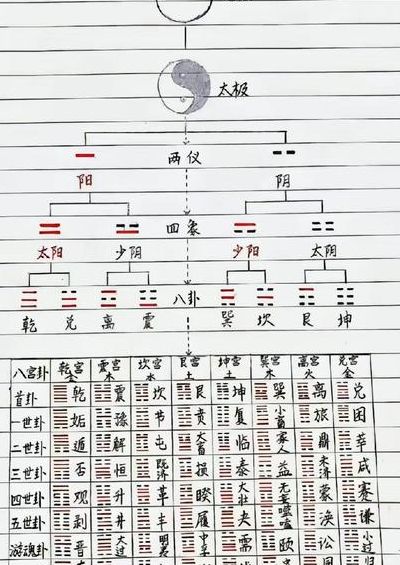 太极
两仪
阳 阴
四象
太阳 少阴 少阳 太阴
八卦
乾 兑 离 震 巽 坎 艮 坤
八宫卦 乾宫金 震宫木 坎宫水 艮宫土 坤宫土 巽宫木 离宫火 兑宫金
首卦 乾 震 坎 艮 坤 巽 离 兑
一世卦 姤 豫 节 贲 复 小畜 旅 困
二世卦 遁 解 屯 大畜 临 家人 鼎 萃
三世卦 否 恒 既济 损 泰 益 未济 咸
四世卦 观 升 革 睽 大壮 无妄 蒙 蹇
五世卦 剥 井 丰 履 夬 噬嗑 涣 谦
游魂卦 晋 大过 明夷 中孚 需 颐 讼 小过